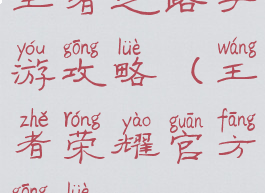 王者之路手
yóu gōng lüè wáng
游攻略(王
zhě róng yào guān fāng
者荣耀官方
gōng lüè